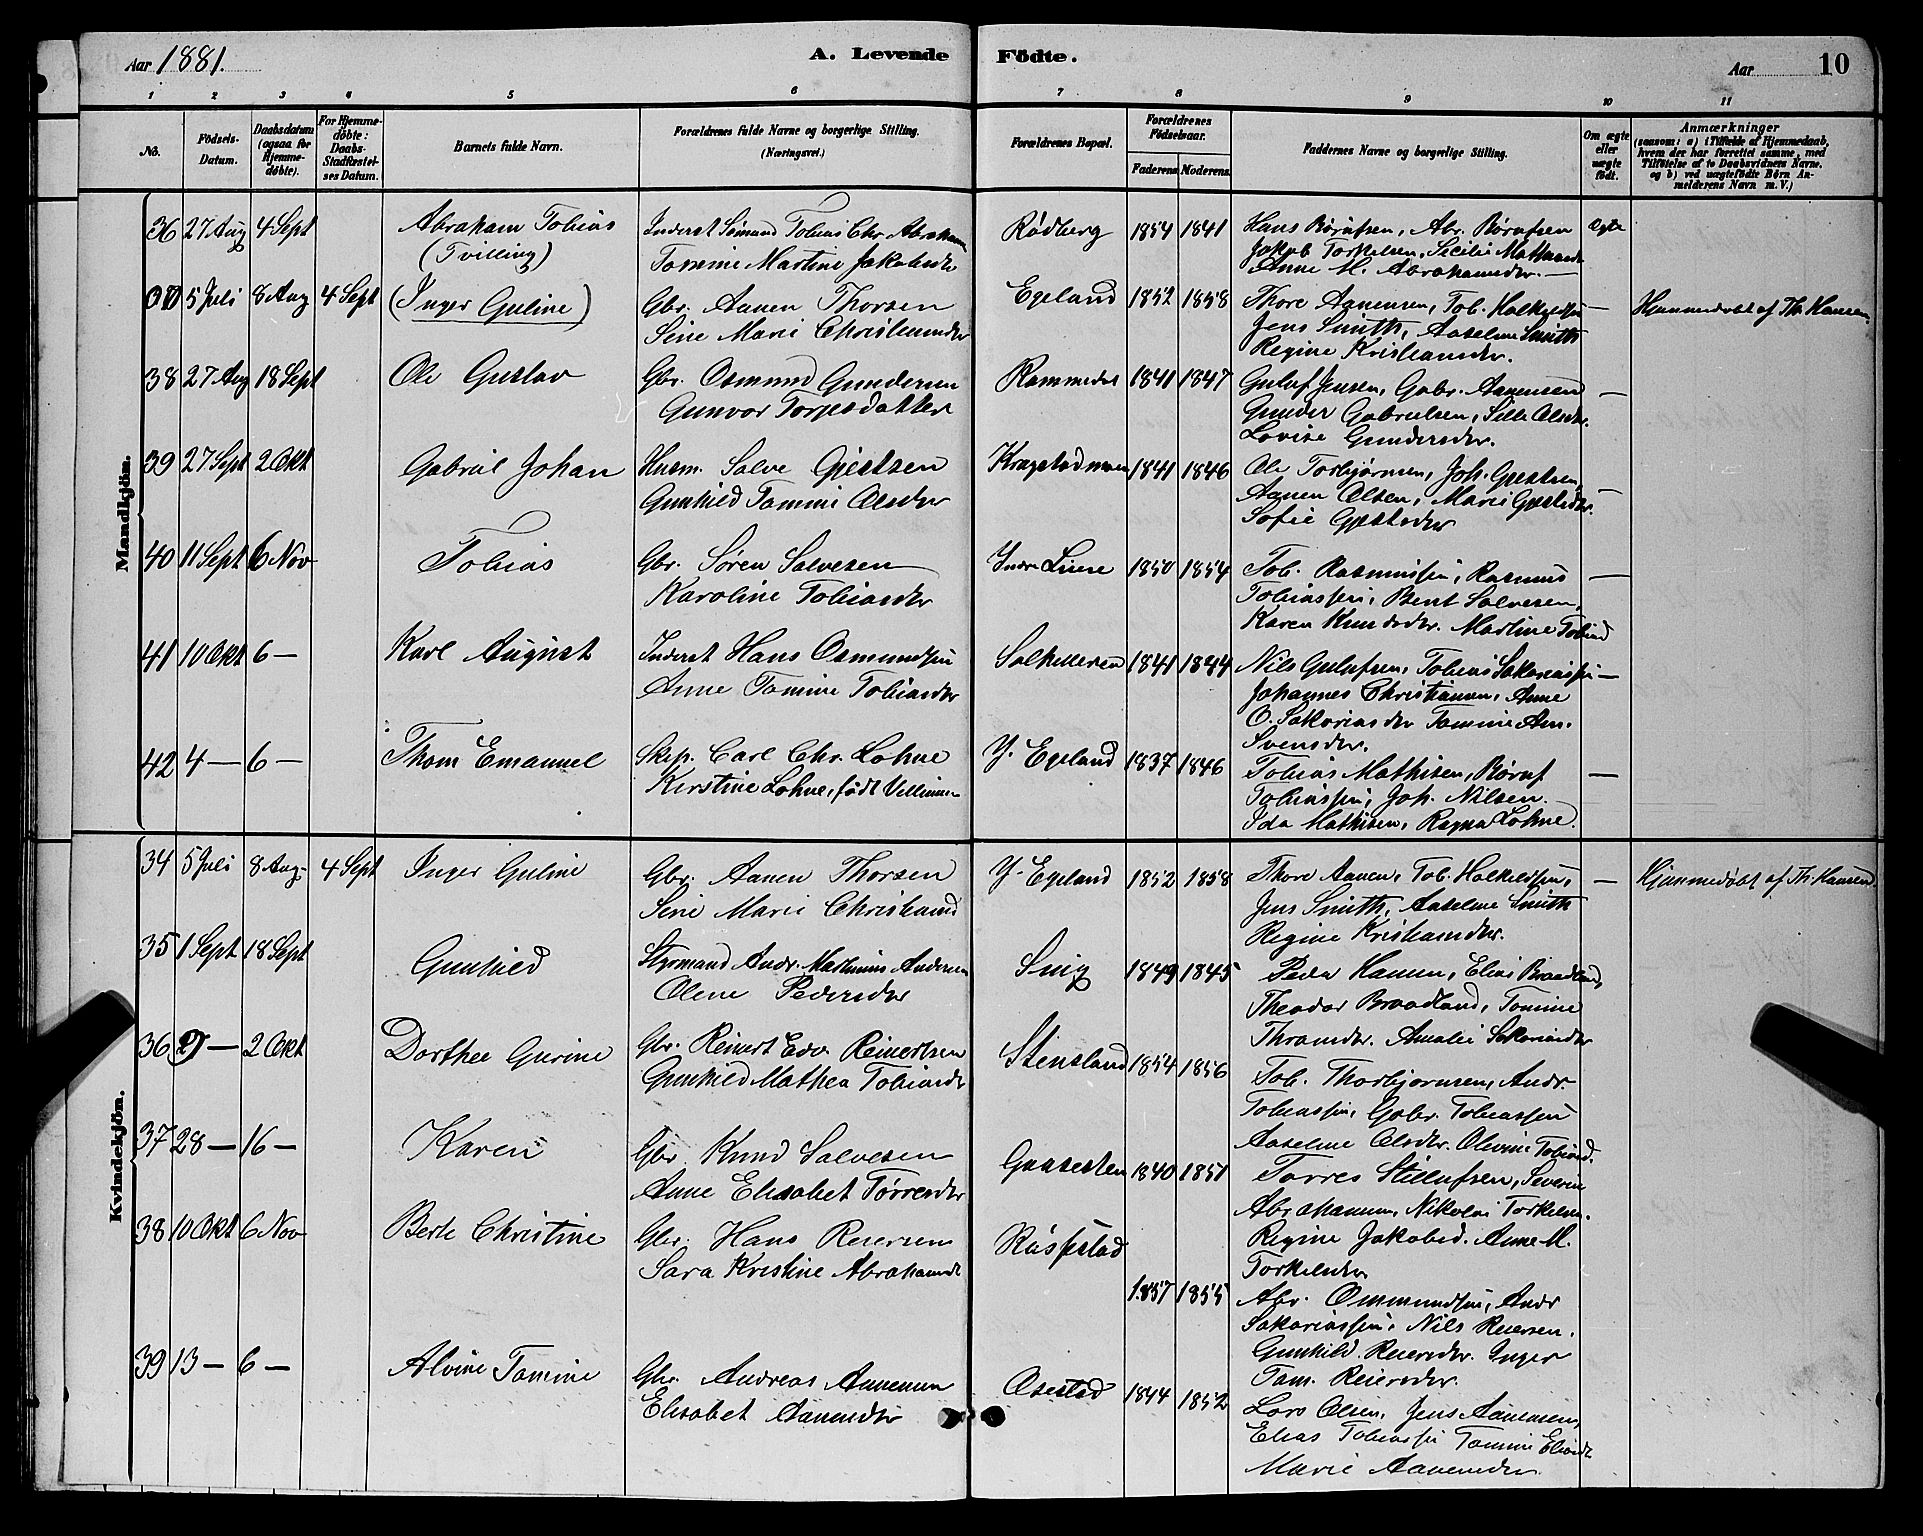 Aar 1881.
A. Levende Födte.
Aar
10
1 2 3 4 5 6 7 8 9 10 11
No.
Födsels-
Datum.
Daabsdatum
(ogsaa for
Hjemme-
döbte).
For Hjemme-
döbte:
Daabs-
Stadfæstel-
ses Datum.
Barnets fulde Navn.
Forældrenes fulde Navne og borgerlige Stilling.
(Næringsvei.)
Forældrenes Bopæl.
Forældrenes
Födselsaar.
Faderens Moderens
Faddernes Navne og borgerlige Stilling.
Om ægte
eller
uægte
födt.
Anmærkninger
(saasom: a) i Tilfælde af Hjemmedaab,
hvem der har forrettet samme, med
Tilföielse af to Daabsvidners Navne,
og b) ved uægtefödte Börn An-
melderens Navn m. V.)
Mandkjön.
36 27 Aug 4 Sept Abraham Tobias
(Tvilling)
Inderst Sömand Tobias Chr. Abraham
Tomine Martine Jakobsdr
Rödberg 1854 1841
Hans Rörufsen, Abr. Rörufsen
Jakob Torkelsen, Secilie
Anne M. Abrahamsdr. —
Ægte
5 Juli 8 Aug 4 Sept (Inger Guline)
Gbr. Aanen Thorsen
Sine Marie Christiansdr
Egeland 1852 1858
Thore Aanensen, Tob.
Jens Smith, Aaseline Smith
Regine Kristiansdr.
—
Hjemmedöbt af Th. Hansen
38 27 Aug 18 Sept Ole Gustav
Gbr. Osmund Gundersen
Gunvor Torjesdatter
1841 1847
Guluf Jensen, Gabr. Aanensen
Gunder Gabrielsen, Sille Olsdr.
Lovise Gundersdr.
—
39 27 Sept 2 Okt Gabriel Johan
Husm. Salve Gjertsen
Gunhild Tomine Olsdr
Kragstadmoen 1841 1846
Ole Torbjörnsen, Joh. Gjertsen,
Aanen Olsen, Marie Gjertsdr.
Sofie Gjertsdr
—
40 11 Sept 6 Nov Tobias
Gbr. Sören Salvesen
Karoline Tobiasdr
Indre 1850 1854
Tob. Rasmussen, Rasmus
Tobiassen, Bent Salvesen,
Karen Knudsdr. Martine Tobiasd
—
41 10 Okt 6 — Karl August
Inderst Hans Osmundsen
Anne Tomine Tobiasdr
1841 1844
Nils Gulufsen, Tobias Sakariassen
Johannes Christiansen, Anne
O. Sakariasdr Tomine Am.
Svensdr.
—
42 4 — 6 — Thom Emanuel
Skip. Carl Chr. Lohne
Kirstine Lohne, födt Villumsen
Y. Egeland 1837 1846
Tobias Mathisen, Röruf
Tobiassen, Joh. Nilsen.
Ida Mathisen, Ragna Lohne.
—
Kvindekjön.
34 5 Juli 8 Aug. 4 Sept Inger Guline
Gbr. Aanen Thorsen
Sine Marie Christiansd
Y. Egeland 1852 1858
Thore Aanen, Tob.
Jens Smith, Aaseline Smith
Regine Kristiansdr.
—
Hjemmedöbt af Th. Hansen
35 1 Sept 18 Sept Gunhild
Styrmand Andr. Martinius Andersen
Olene Pedersdr
Snig 1849 1845
Peder Hansen, Elias Braadland,
Theodor Braadland, Tomine
Thomsdr. Amalie Sakariasdr
36 — 2 Okt Dorthea Gurine
Gbr. Reinert Edv. Reinertsen
Gunhild Mathea Tobiasdr
Stensland 1854 1856
Tob. Thorbjörnsen, Andr.
Tobiassen, Gabr. Tobiassen
Aaseline Olsdr. Olivine Tobiasd.
37 28 — 16 — Karen
Gbr. Knud Salvesen
Anne Elisabet Törresdr
Gaasesten 1840 1851
Torres Stellufsen, Severin
Abrahamsen, Nikolai Torkelsen.
Regine Jakobsd. Anne M.
Torkelsdr
38 10 Okt 6 Nov Berte Christine
Gbr. Hans Reiersen
Sara Kristine Abrahamsd
Risfestad 1857 1855
Abr. Osmundsen, Andr
Sakariassen, Nils Reiersen.
Gunhild Reiersdr. Inger
Tom. Reiersdr.
39 13 — 6 — Alvine Tomine
Gbr. Andreas Aanensen
Elisabet Aanensdr
Osestad 1844 1852
Lars Olsen, Jens Aanensen,
Elias Tobiassen Tomine Eliasd
Marie Aanensdr